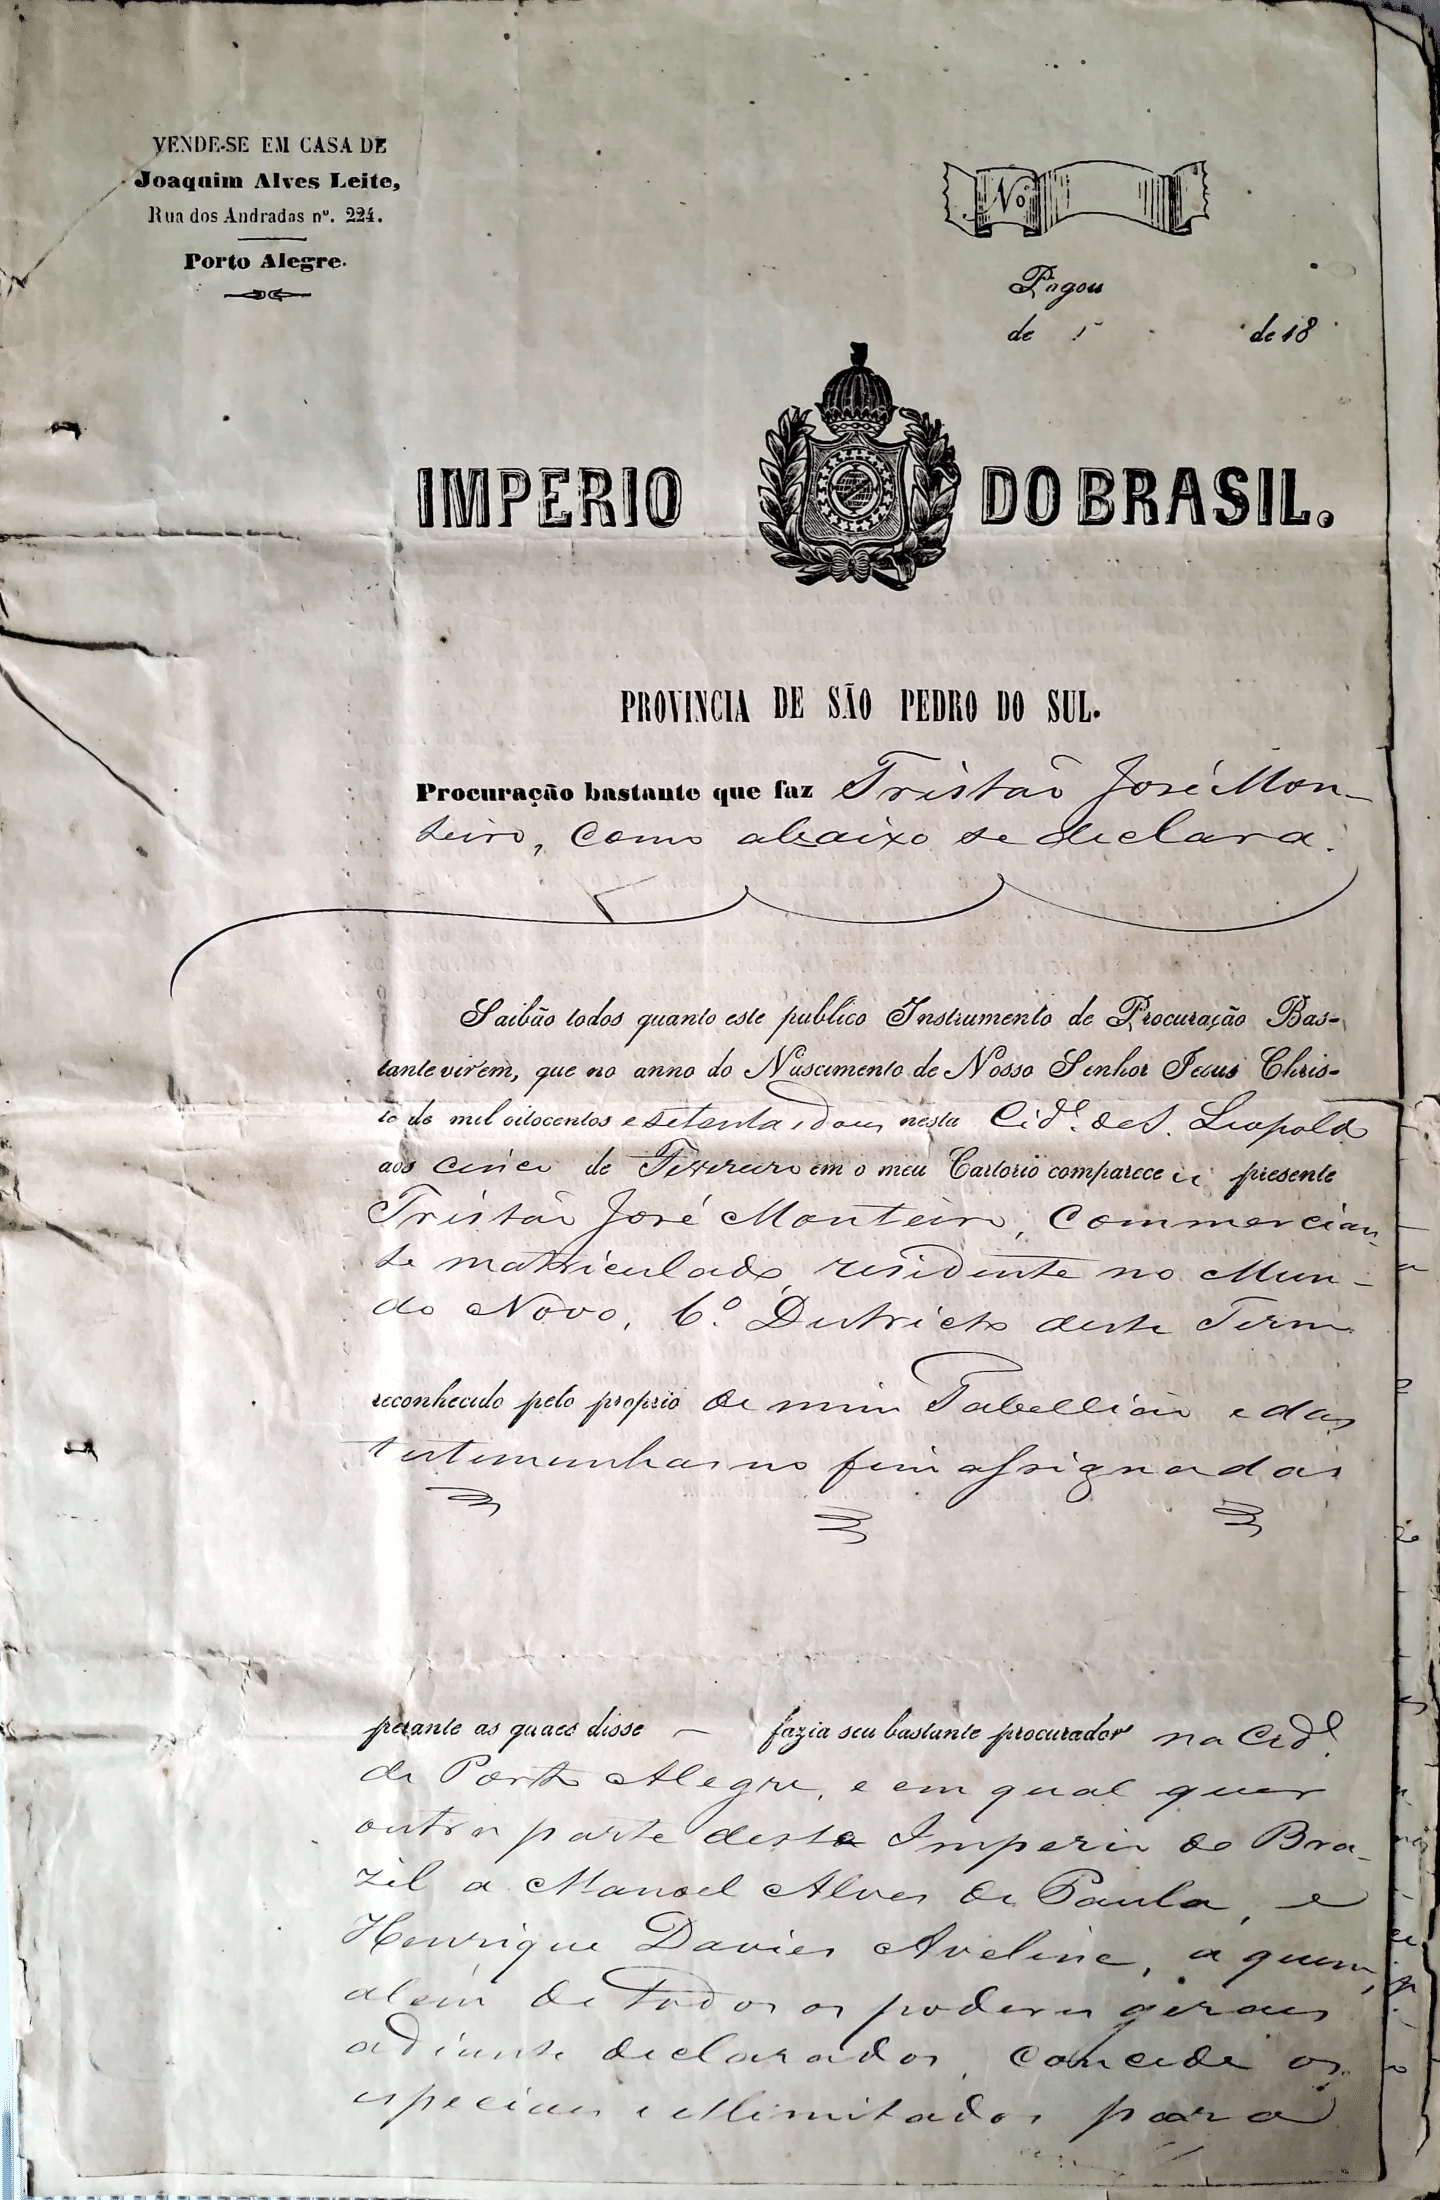 VENDE-SE EM CASA DE
Joaquim Alves Leite,
Rua dos Andradas nº. 224.
Porto Alegre.
Nº
Pagou
de de 18
IMPERIO DO BRASIL.
PROVINCIA DE SÃO PEDRO DO SUL.
Procuração bastante que faz Tristão José Mon-
teiro, como abaixo se declara.
Saibão todos quanto este publico Instrumento de Procuração Bas-
tante virem, que no anno do Nascimento de Nosso Senhor Jesus Chris-
to de mil oitocentos e setenta e dous nesta Cid.e de S. Leopoldo
aos cinco de Fevereiro em o meu Cartorio comparece u presente
Tristão José Monteiro, Commercian-
te matriculado, residente no Mun-
do Novo, 6.º Districto deste Termo
reconhecido pelo proprio de mim Tabellião e das
testemunhas no fim assignadas
perante as quaes disse — fazia seu bastante procurador na Cid.e
de Porto Alegre, e em qual quer
outra parte deste Imperio do Bra-
zil a Manoel Alves de Paula, e
Henrique Davies Aveline, a quem,
além de todos os poderes geraes
adiante declarados, concede os
especiaes e illimitados para